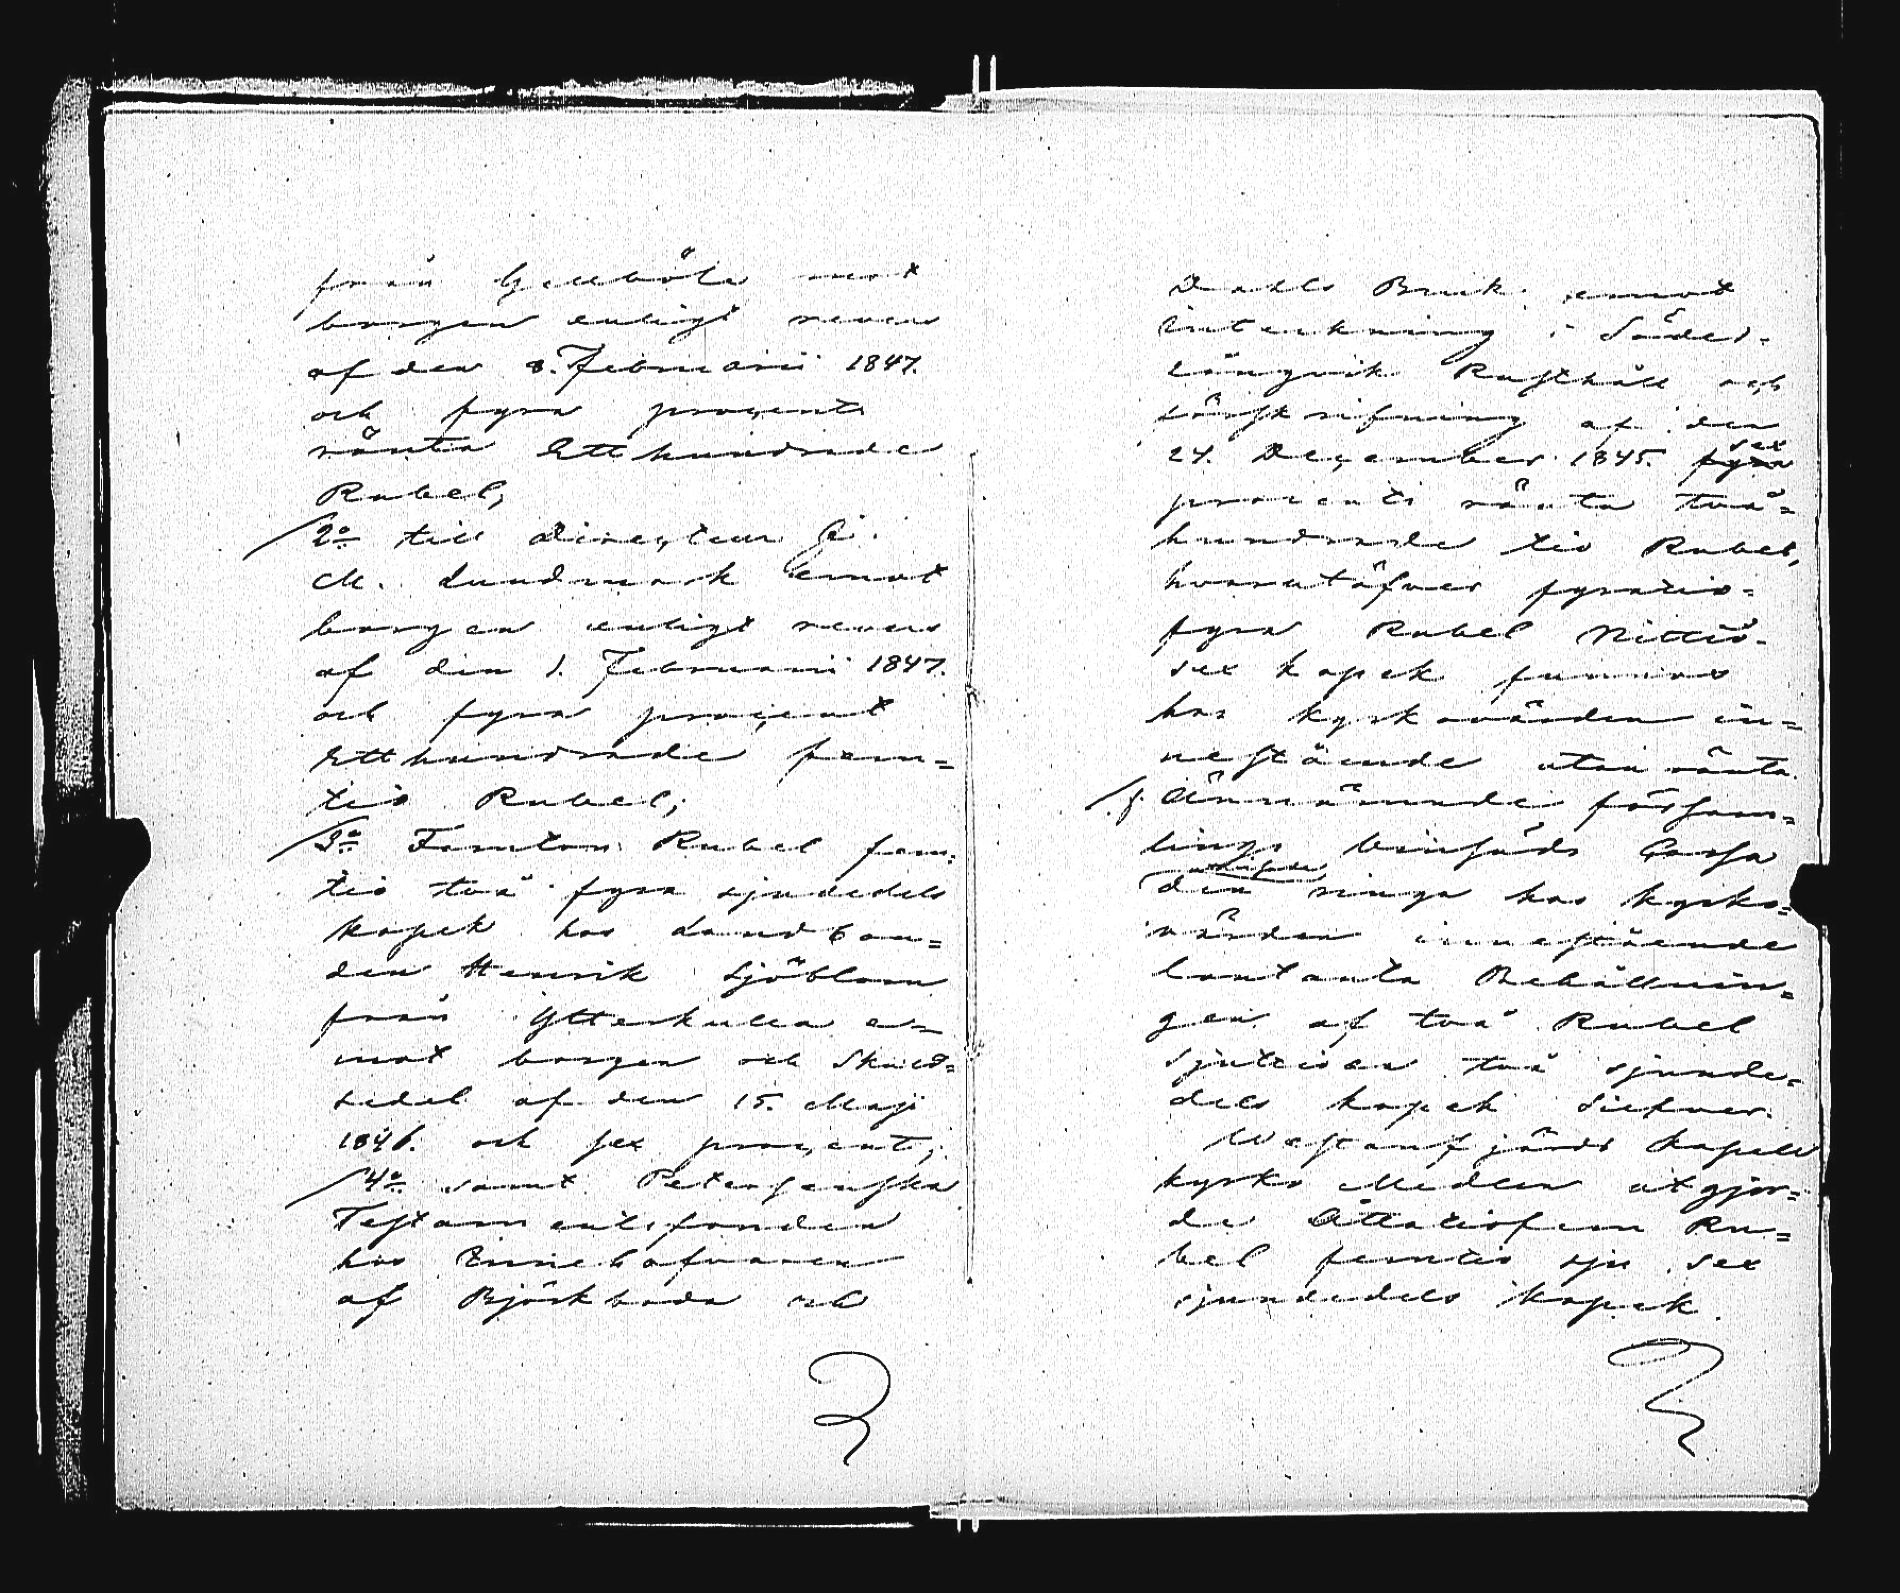 från Gellböle mot
borgen enligt revers
af den 8. Februarii 1847.
och fyra procents
ränta Etthundrade
Rubel,
2:o till Directeur G.
M. Lundmark emot
borgen enligt revers
af den 1. Februarii 1847.
och fyra procent
Etthundrade fem=
tio Rubel;
3:o Femton Rubel fem=
tio två fyra sjundedels
kopek hos Landbon=
den Henrik Sjöblom
från Ytterkulla e=
mot borgen och Skuld=
sedel af den 15. Maji
1846. och sex procent;
4:o samt Petersenska
Testamentsfonden
hos Innehafvaren
af Björkboda och
Dahls Bruk emot
inteckning i Söder=
långvik Rusthåll och
förskrifning af den
24. December 1845. sex fyra
procents ränta två=
hundrade tio Rubel,
hvarutöfver fyratio=
fyra Rubel Nittio=
sex kopek funnos
hos kyrkovärden in=
nestående utan ränta.
Ännämnde försam=
lings Cassa
den ringa hos kyrko=
värden innestående
contanta Behållnin=
gen af två Rubel
sjutton två sjunde=
dels kopek Silfver.
Westanfjärds Kapell
kyrko Medlen utgjor=
de Åttatiofem Ru=
bel femtio sju sex
sjundedels kopek.